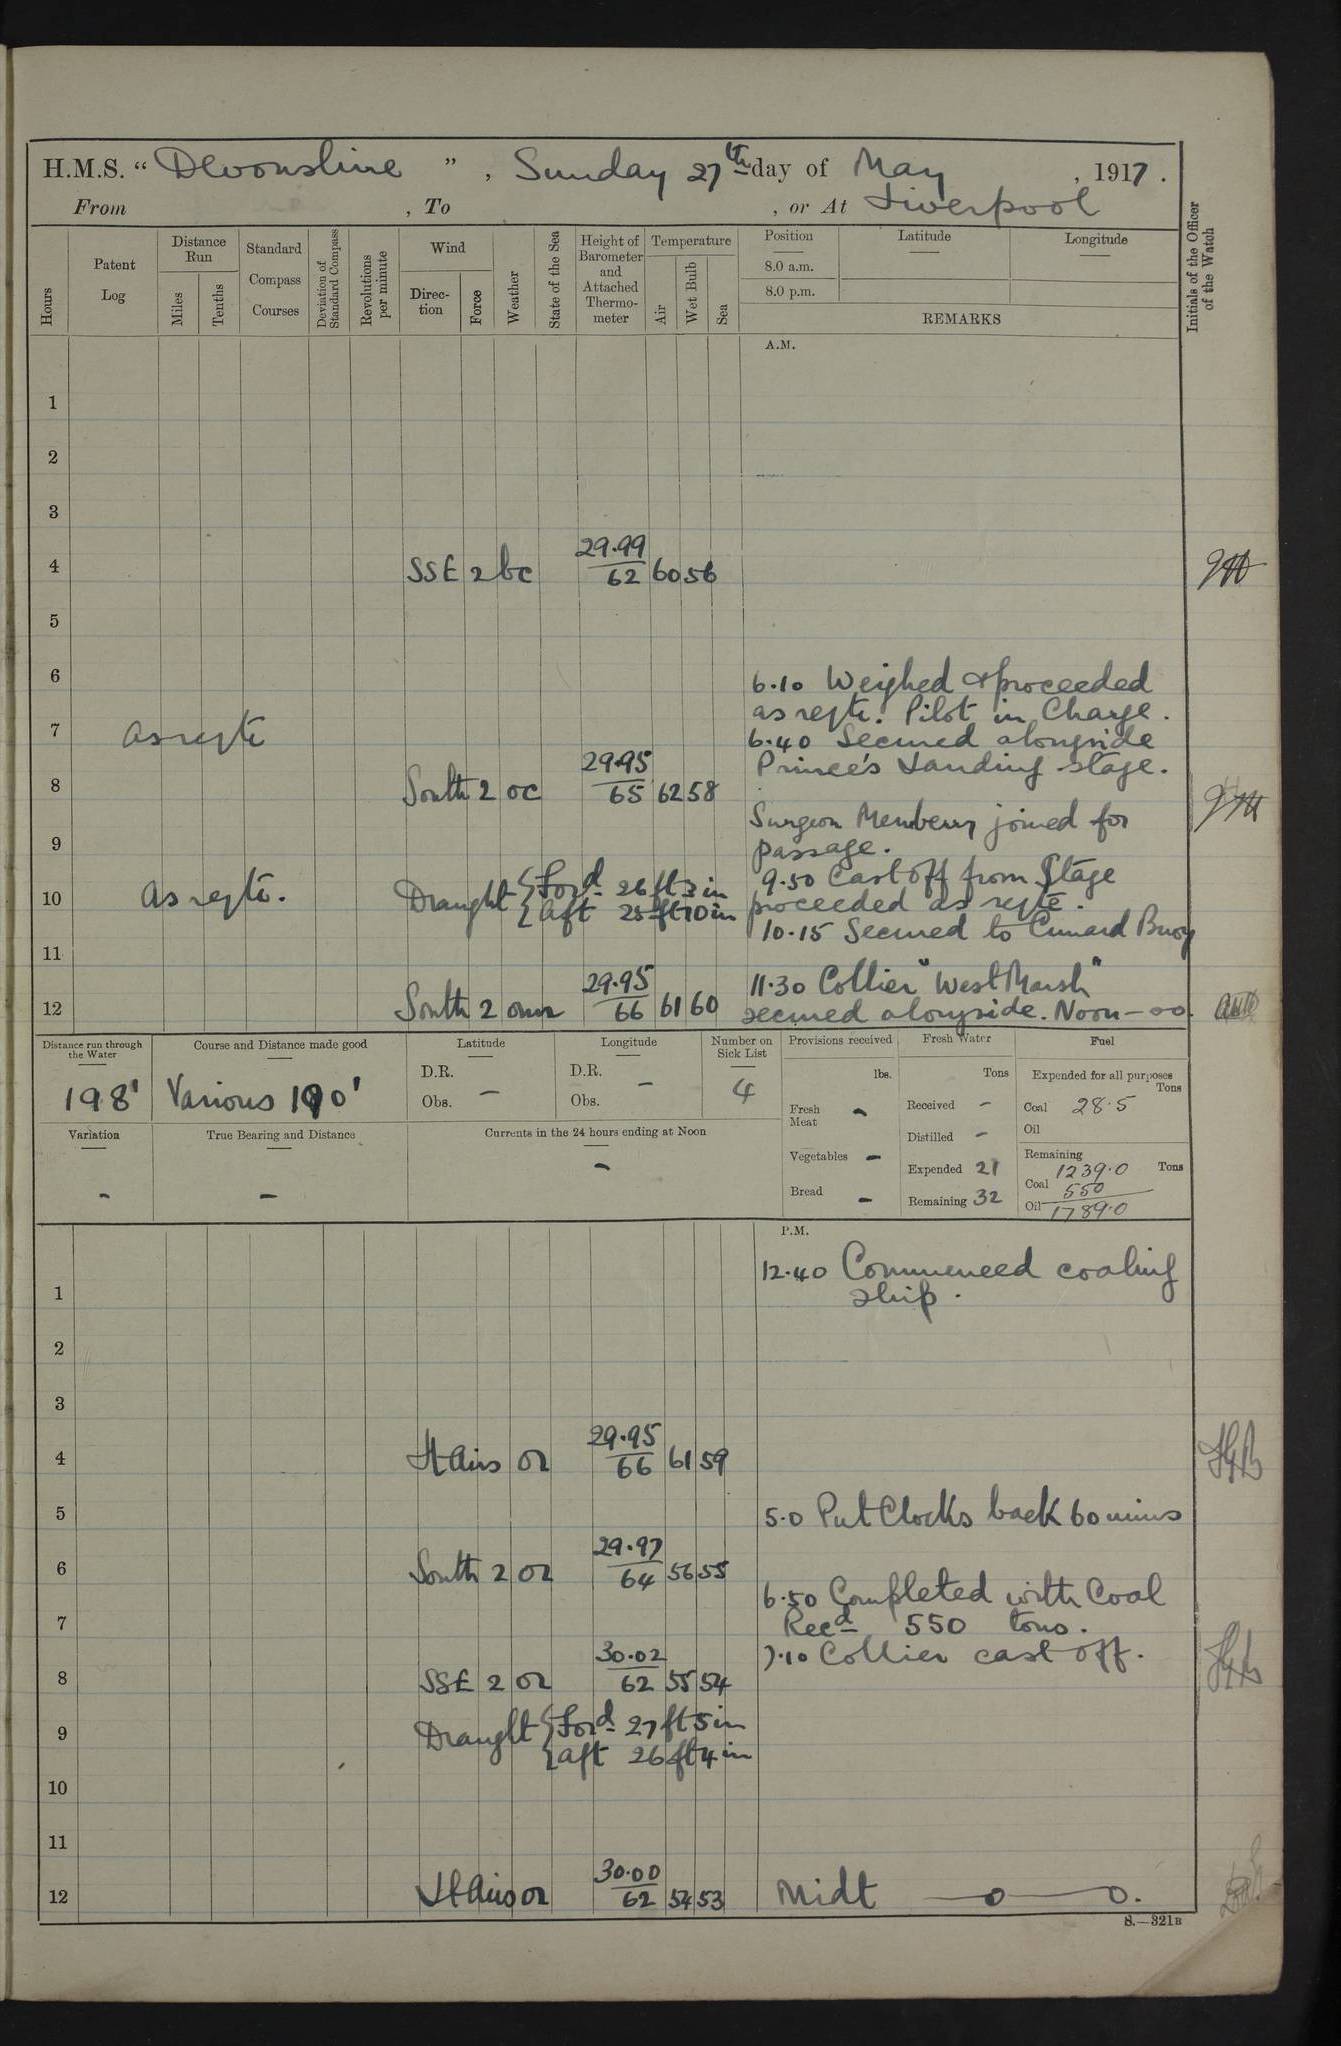 H.M.S. " Devonshire " , Sunday 27th day of May , 1917 .
From , To , or At Liverpool
Hours
Patent Log
Distance Run
Miles
Tenths
Standard Compass Courses
Deviation of Standard Compass
Revolutions per minute
Wind
Direc-tion
Force
Weather
State of the Sea
Height of Barometer and Attached Thermo-meter
Temperature
Air
Wet Bulb
Sea
Position
8.0 a.m.
8.0 p.m.
Latitude
Longitude
REMARKS
Initials of the Officer of the Watch
A.M.
1
2
3
4 SSE 2 bc 29.99 / 62 60 56
5
6
6.10 Weighed & proceeded
as reqte. Pilot in Charge.
7 as reqte
6.40 Secured alongside
Prince's Landing stage.
8 South 2 oc 29.95 / 65 62 58
Surgeon joined for
9 passage.
9.50 Cast off from Stage
10 as reqte. Draught { Ford 26 ft 3 in
{ aft 25 ft 10 in
proceeded as reqte.
10.15 Secured to Cunard Buoy
11
11.30 Collier "West Marsh"
12 South 2 29.95 / 66 61 60 secured alongside. Noon - oo.
Distance run through the Water
198'
Course and Distance made good
Various 190'
Latitude
D.R.
Obs. -
Longitude
D.R. -
Obs.
Number on Sick List
4
Provisions received
lbs.
Fresh Meat -
Vegetables -
Bread -
Fresh Water
Tons
Received -
Distilled -
Expended 21
Remaining 32
Fuel
Expended for all purposes
Tons
Coal 28.5
Oil
Remaining
Tons
1239.0
Coal 550
Oil 1789.0
Variation
-
True Bearing and Distance
-
Currents in the 24 hours ending at Noon
-
P.M.
12.40 Commenced coaling
1 ship.
2
3
4 Lt Airs or 29.95 / 66 61 59
5 5.0 Put Clocks back 60 mins
6 South 2 or 29.97 / 64 56 55
6.50 Completed with Coal
7 Recd 550 tons.
7.10 Collier cast off.
8 SSE 2 or 30.02 / 62 55 54
9 Draught { Ford 27 ft 5 in
{ aft 26 ft 4 in
10
11
12 Lt Airs or 30.00 / 62 54 53 Midt —o— o.
S.—321B